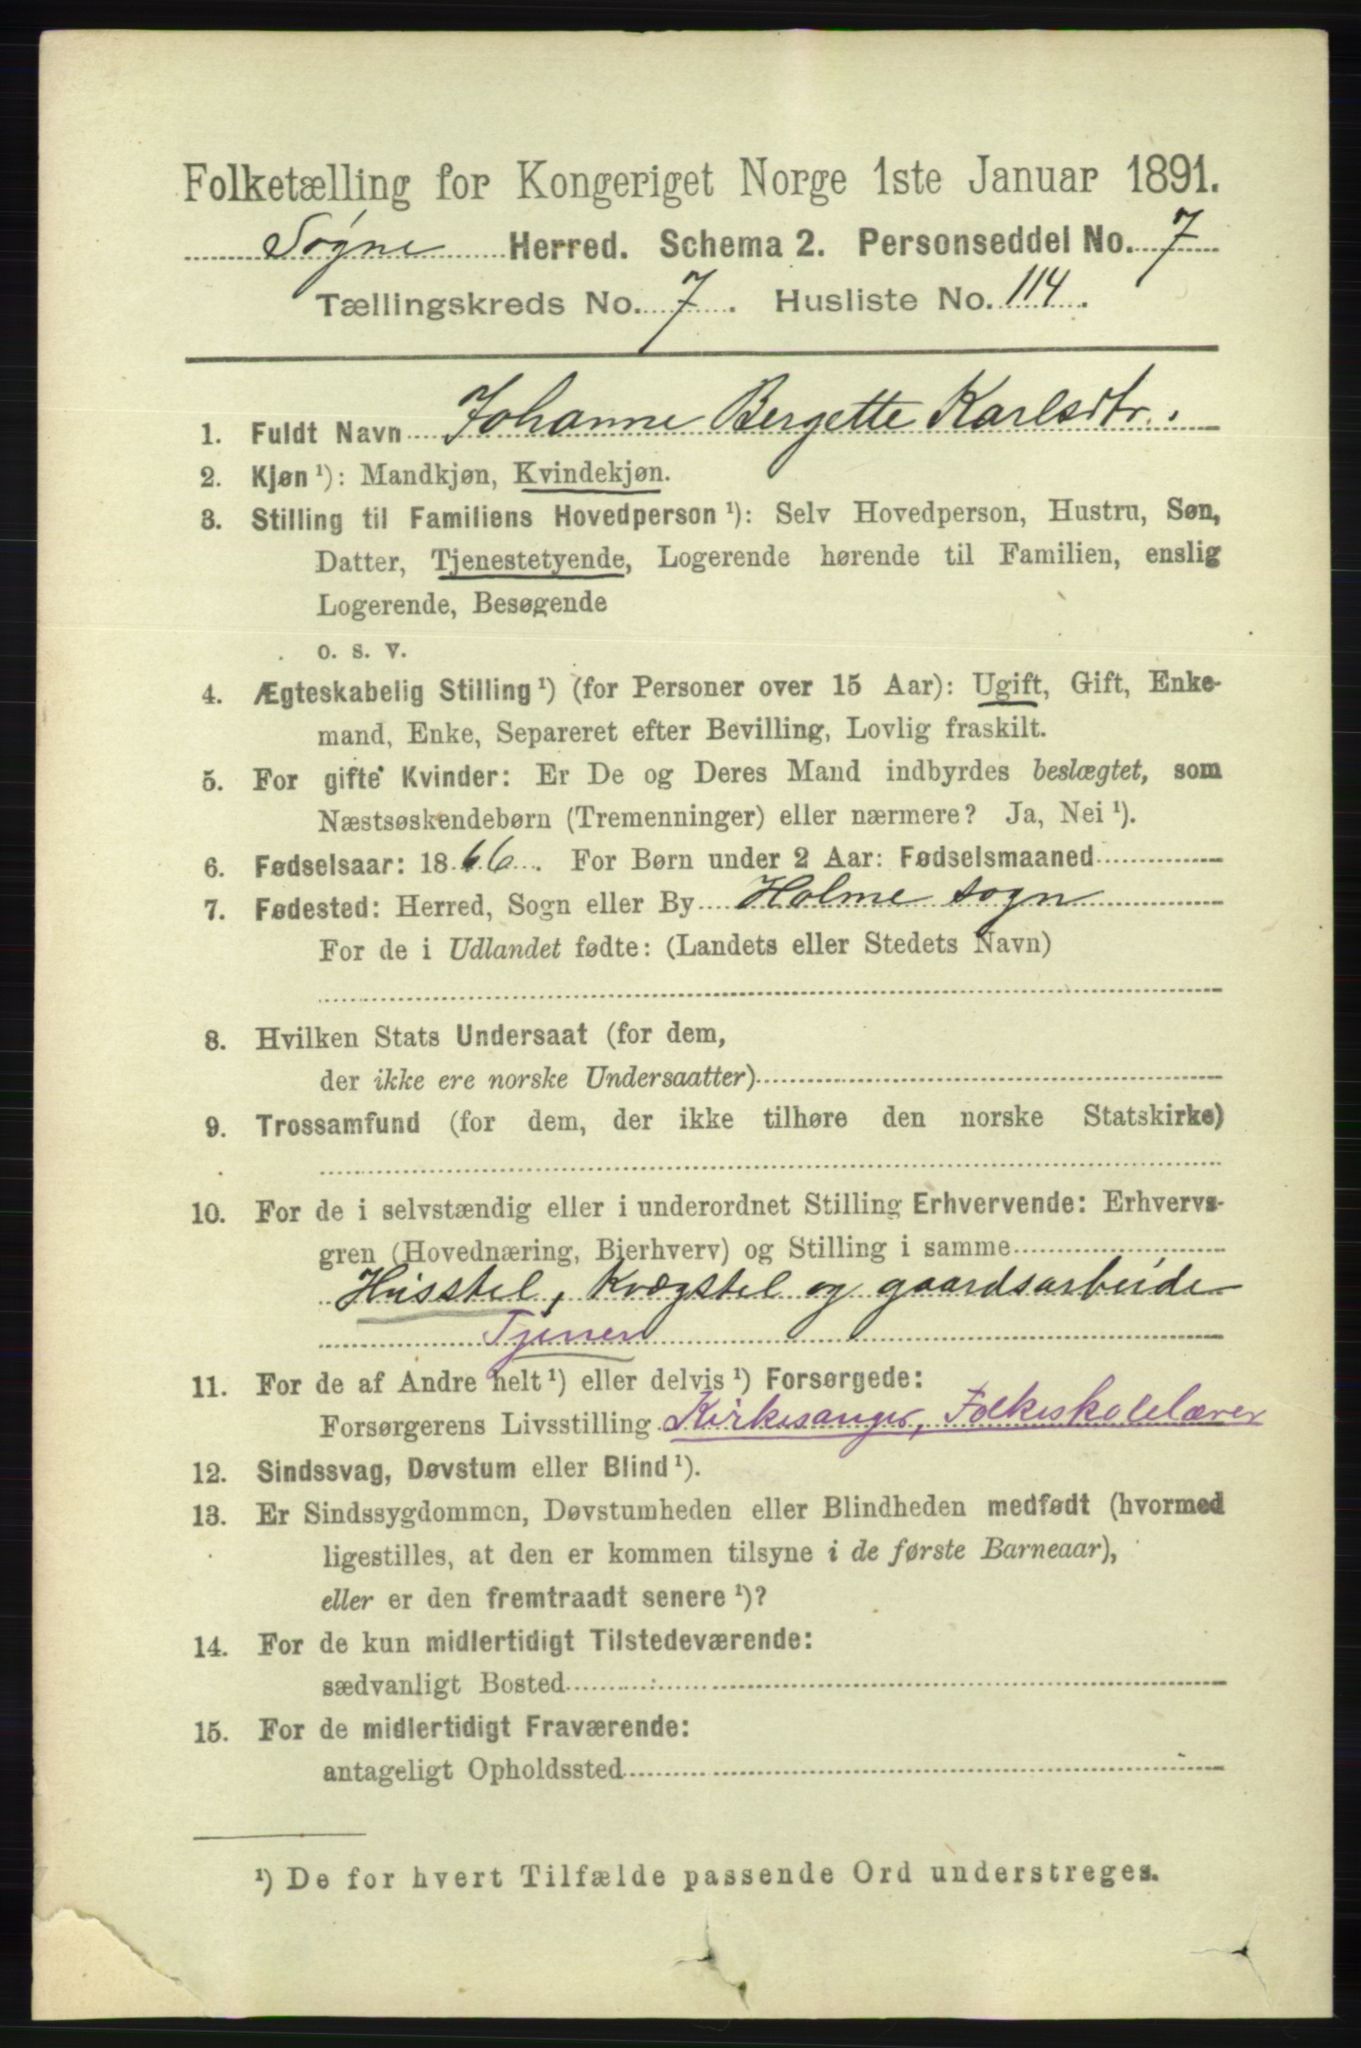 Folketælling for Kongeriget Norge 1ste Januar 1891.
Søgne Herred. Schema 2. Personseddel No. 7
Tællingskreds No. 7. Husliste No. 114.
1. Fuldt Navn Johanne Bergette Karlsdtr.
2. Kjøn ¹): Mandkjøn, Kvindekjøn.
3. Stilling til Familiens Hovedperson ¹): Selv Hovedperson, Hustru, Søn,
Datter, Tjenestetyende, Logerende hørende til Familien, enslig
Logerende, Besøgende
o. s. v.
4. Ægteskabelig Stilling ¹) (for Personer over 15 Aar): Ugift, Gift, Enke-
mand, Enke, Separeret efter Bevilling, Lovlig fraskilt.
5. For gifte Kvinder: Er De og Deres Mand indbyrdes beslægtet, som
Næstsøskendebørn (Tremenninger) eller nærmere? Ja, Nei ¹).
6. Fødselsaar: 1866. For Børn under 2 Aar: Fødselsmaaned
7. Fødested: Herred, Sogn eller By Holme sogn
For de i Udlandet fødte: (Landets eller Stedets Navn)
8. Hvilken Stats Undersaat (for dem,
der ikke ere norske Undersaatter)
9. Trossamfund (for dem, der ikke tilhøre den norske Statskirke)
10. For de i selvstændig eller i underordnet Stilling Erhvervende: Erhvervs-
gren (Hovednæring, Bierhverv) og Stilling i samme
Husstel, Kvægstel og gaardsarbeide
Tjener
11. For de af Andre helt ¹) eller delvis ¹) Forsørgede:
Forsørgerens Livsstilling Kirkesanger, Folkeskolelærer
12. Sindssvag, Døvstum eller Blind ¹).
13. Er Sindssygdommen, Døvstumheden eller Blindheden medfødt (hvormed
ligestilles, at den er kommen tilsyne i de første Barneaar),
eller er den fremtraadt senere ¹)?
14. For de kun midlertidigt Tilstedeværende:
sædvanligt Bosted
15. For de midlertidigt Fraværende:
antageligt Opholdssted
¹) De for hvert Tilfælde passende Ord understreges.